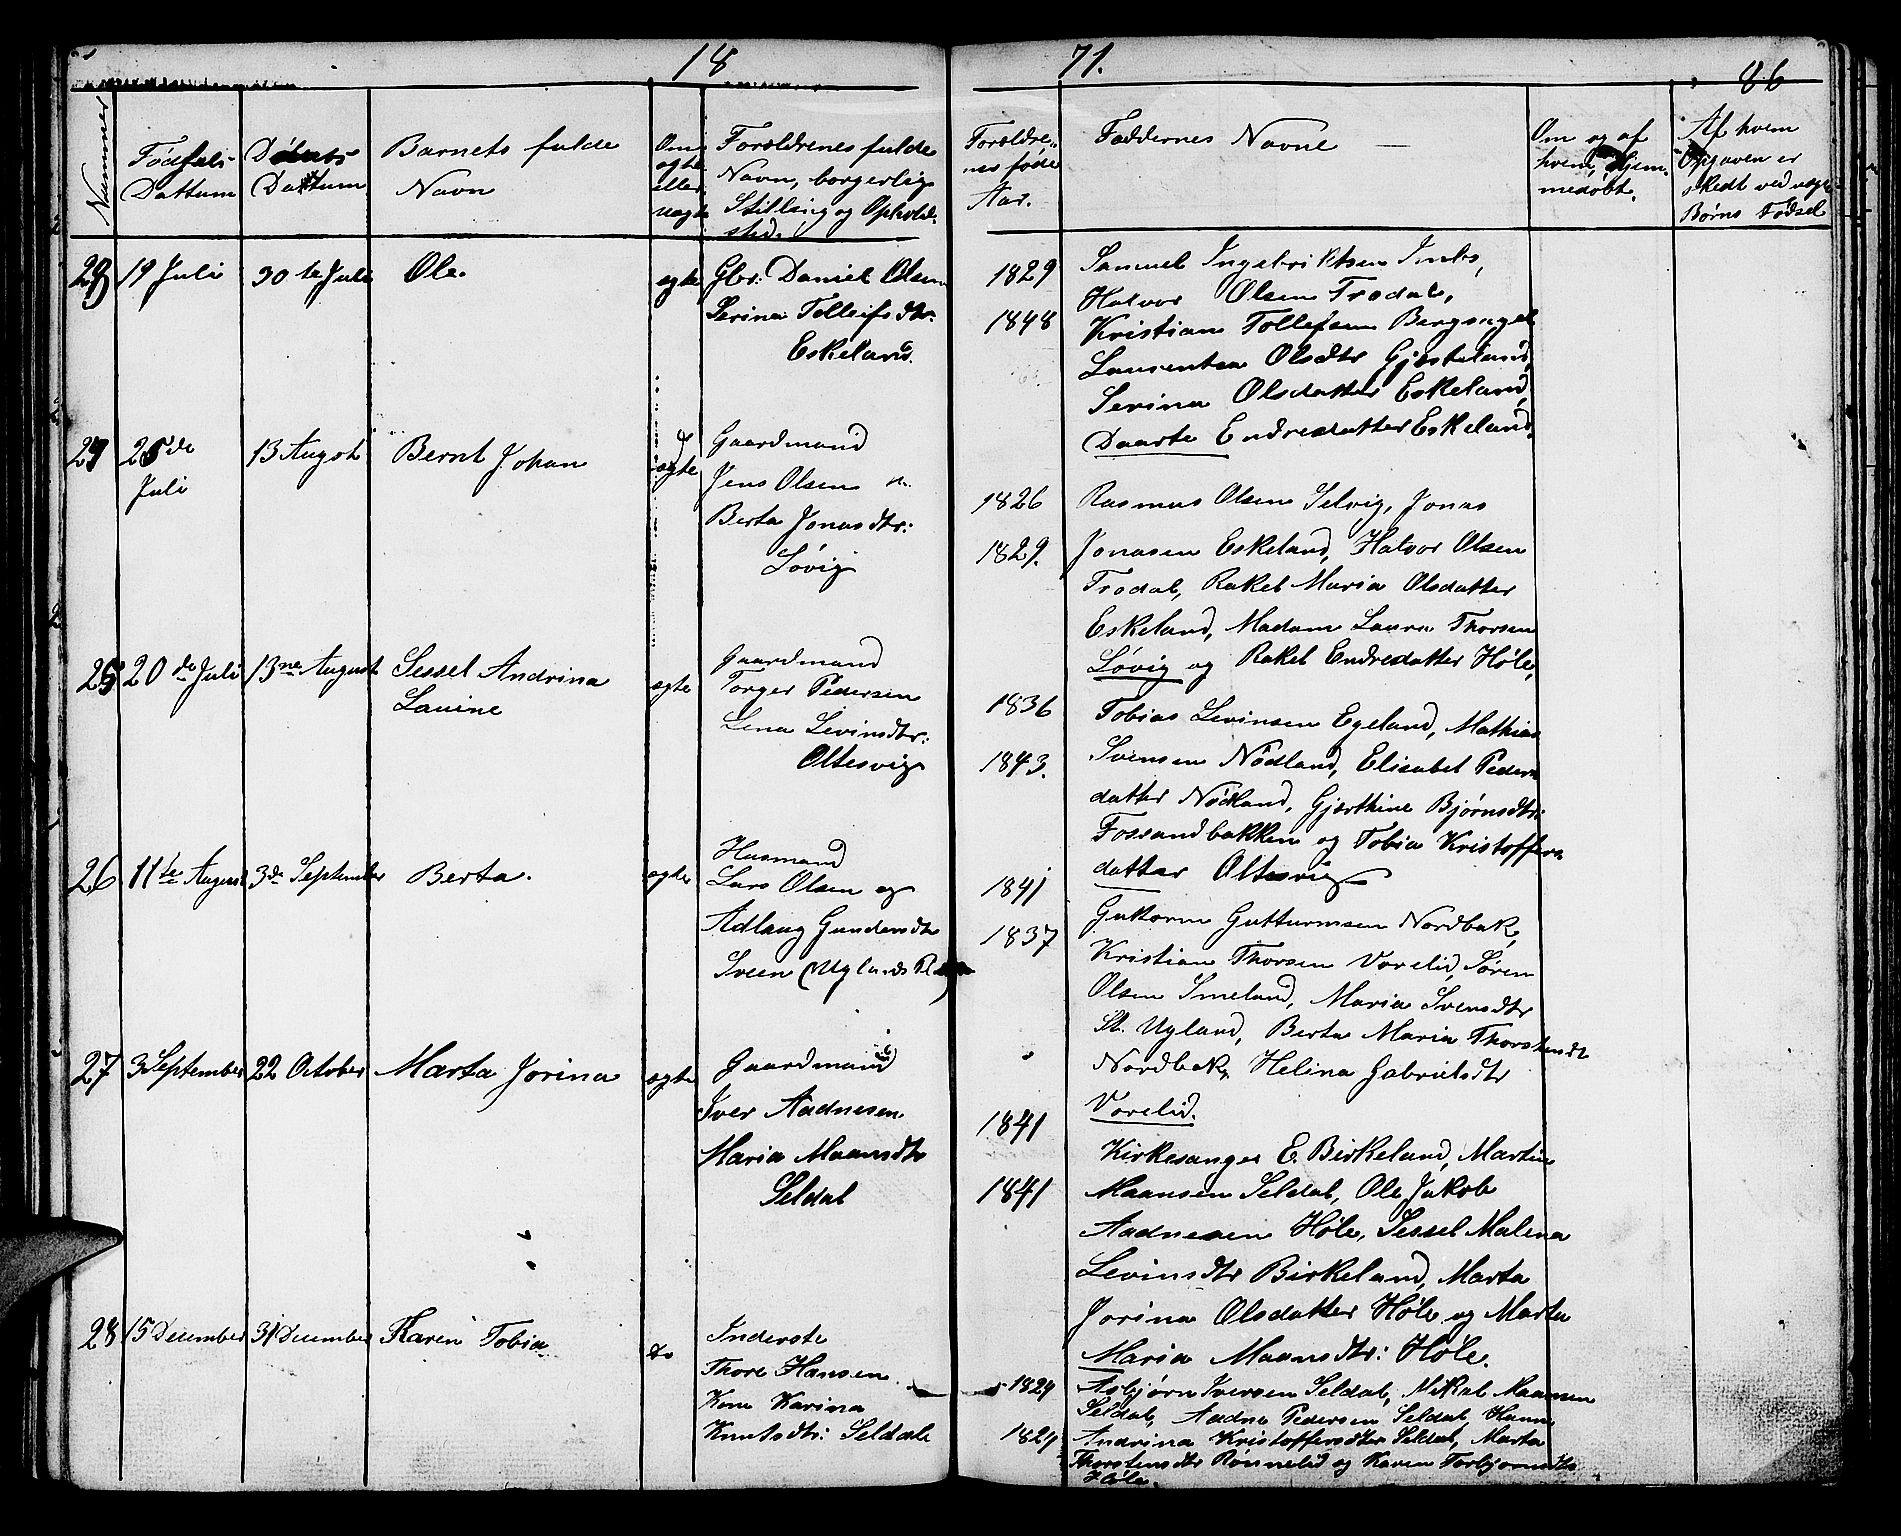 18 71.
86
Nummer
Fødsels-
Dattum
Døbnts-
Dattum
Barnets fulde
Navn
Om
ægte
eller
uægte
Forældrenes fulde
Navn, borgerlig
Stilling og Opholds-
sted.
Forældre-
nes føde
Aar.
Faddernes Navne —
Om og af
hvem, hjem-
medøbt.
Af hvem
Opgaven er
skedt ved uægte
Børns Fødsel
19 Juli 30te Juli Ole. ægte
Gbr. Daniel Olsen
Serina Tolleifsdtr.
Eskeland.
1829
1848
Samuel Ingebriktsen
Halvor Olsen Trodal,
Kristian Tollefsen Bergsagel
Laurentsa Olsdtr Gjesteland,
Serina Olsdatter Eskeland,
Daarte Endredatter Eskeland.
25de
Juli
13 August Bernt Johan ægte
Gaardmand
Jens Olsen
Berta Jonasdtr:
Løvig
1826
1829.
Rasmus Olsen Selvig, Jonas
Jonasen Eskeland, Halvor Olsen
Trodal, Rakel Maria Olsdatter
Eskeland, Madam Laura Thorsen
Løvig og Rakel Endredatter Høle,
25 20de Juli 13ne August Sessel Andrina
Lauine
ægte
Gaardmand
Torger Pedersen
Lena Levinsdtr:
Oltesvig
1836
1843.
Tobias Levinsen Egeland, Mathias
Svensen Nödland, Elisabet Peders
datter Nödland, Gjerthine Bjørnsdtr:
Fossandbakken og Tobia Kristoffers
datter Oltesvig
26 11te August 3de September Berta. ægte
Husmand
Lars Olsen og
Adlaug Gundersdtr
Sveen (Uglands Pl
1841
1837
Guttorm Gutturmsen Nordbak,
Kristian Thorsen Vorelid, Søren
Olsen Imeland, Maria Svensdtr
St. Ugland, Berta Maria Thorstensdt
Nordbak, Helina Gabrielsdtr
Vorelid.
27 3 September 22 October Marta Jorina ægte
Gaardmand
Iver Aadnesen
Maria Maansdtr
Seldal
1841
1841
Kirkesanger E. Birkeland, Martin
Maansen Seldal, Ole Jakob
Aadnesen Høle, Sessel Malena
Levinsdtr Birkeland, Marta
Jorina Olsdatter Høle og Marta
Maria Maansdtr: Høle.
28 15 December 31 December Karen Tobia do
Inderste
Thore Hansen
Kone Karina
Knutsdtr: Seldal
1829
1829
Asbjørn Iversen Seldal, Mikal Maansen
Seldal, Aadne Pedersen Seldal, Hanne
Andrina Kristoffersdtr Seldal, Marta
Thorstensdtr Rønnelid og Karen Torbjørnsdtr
Høle.